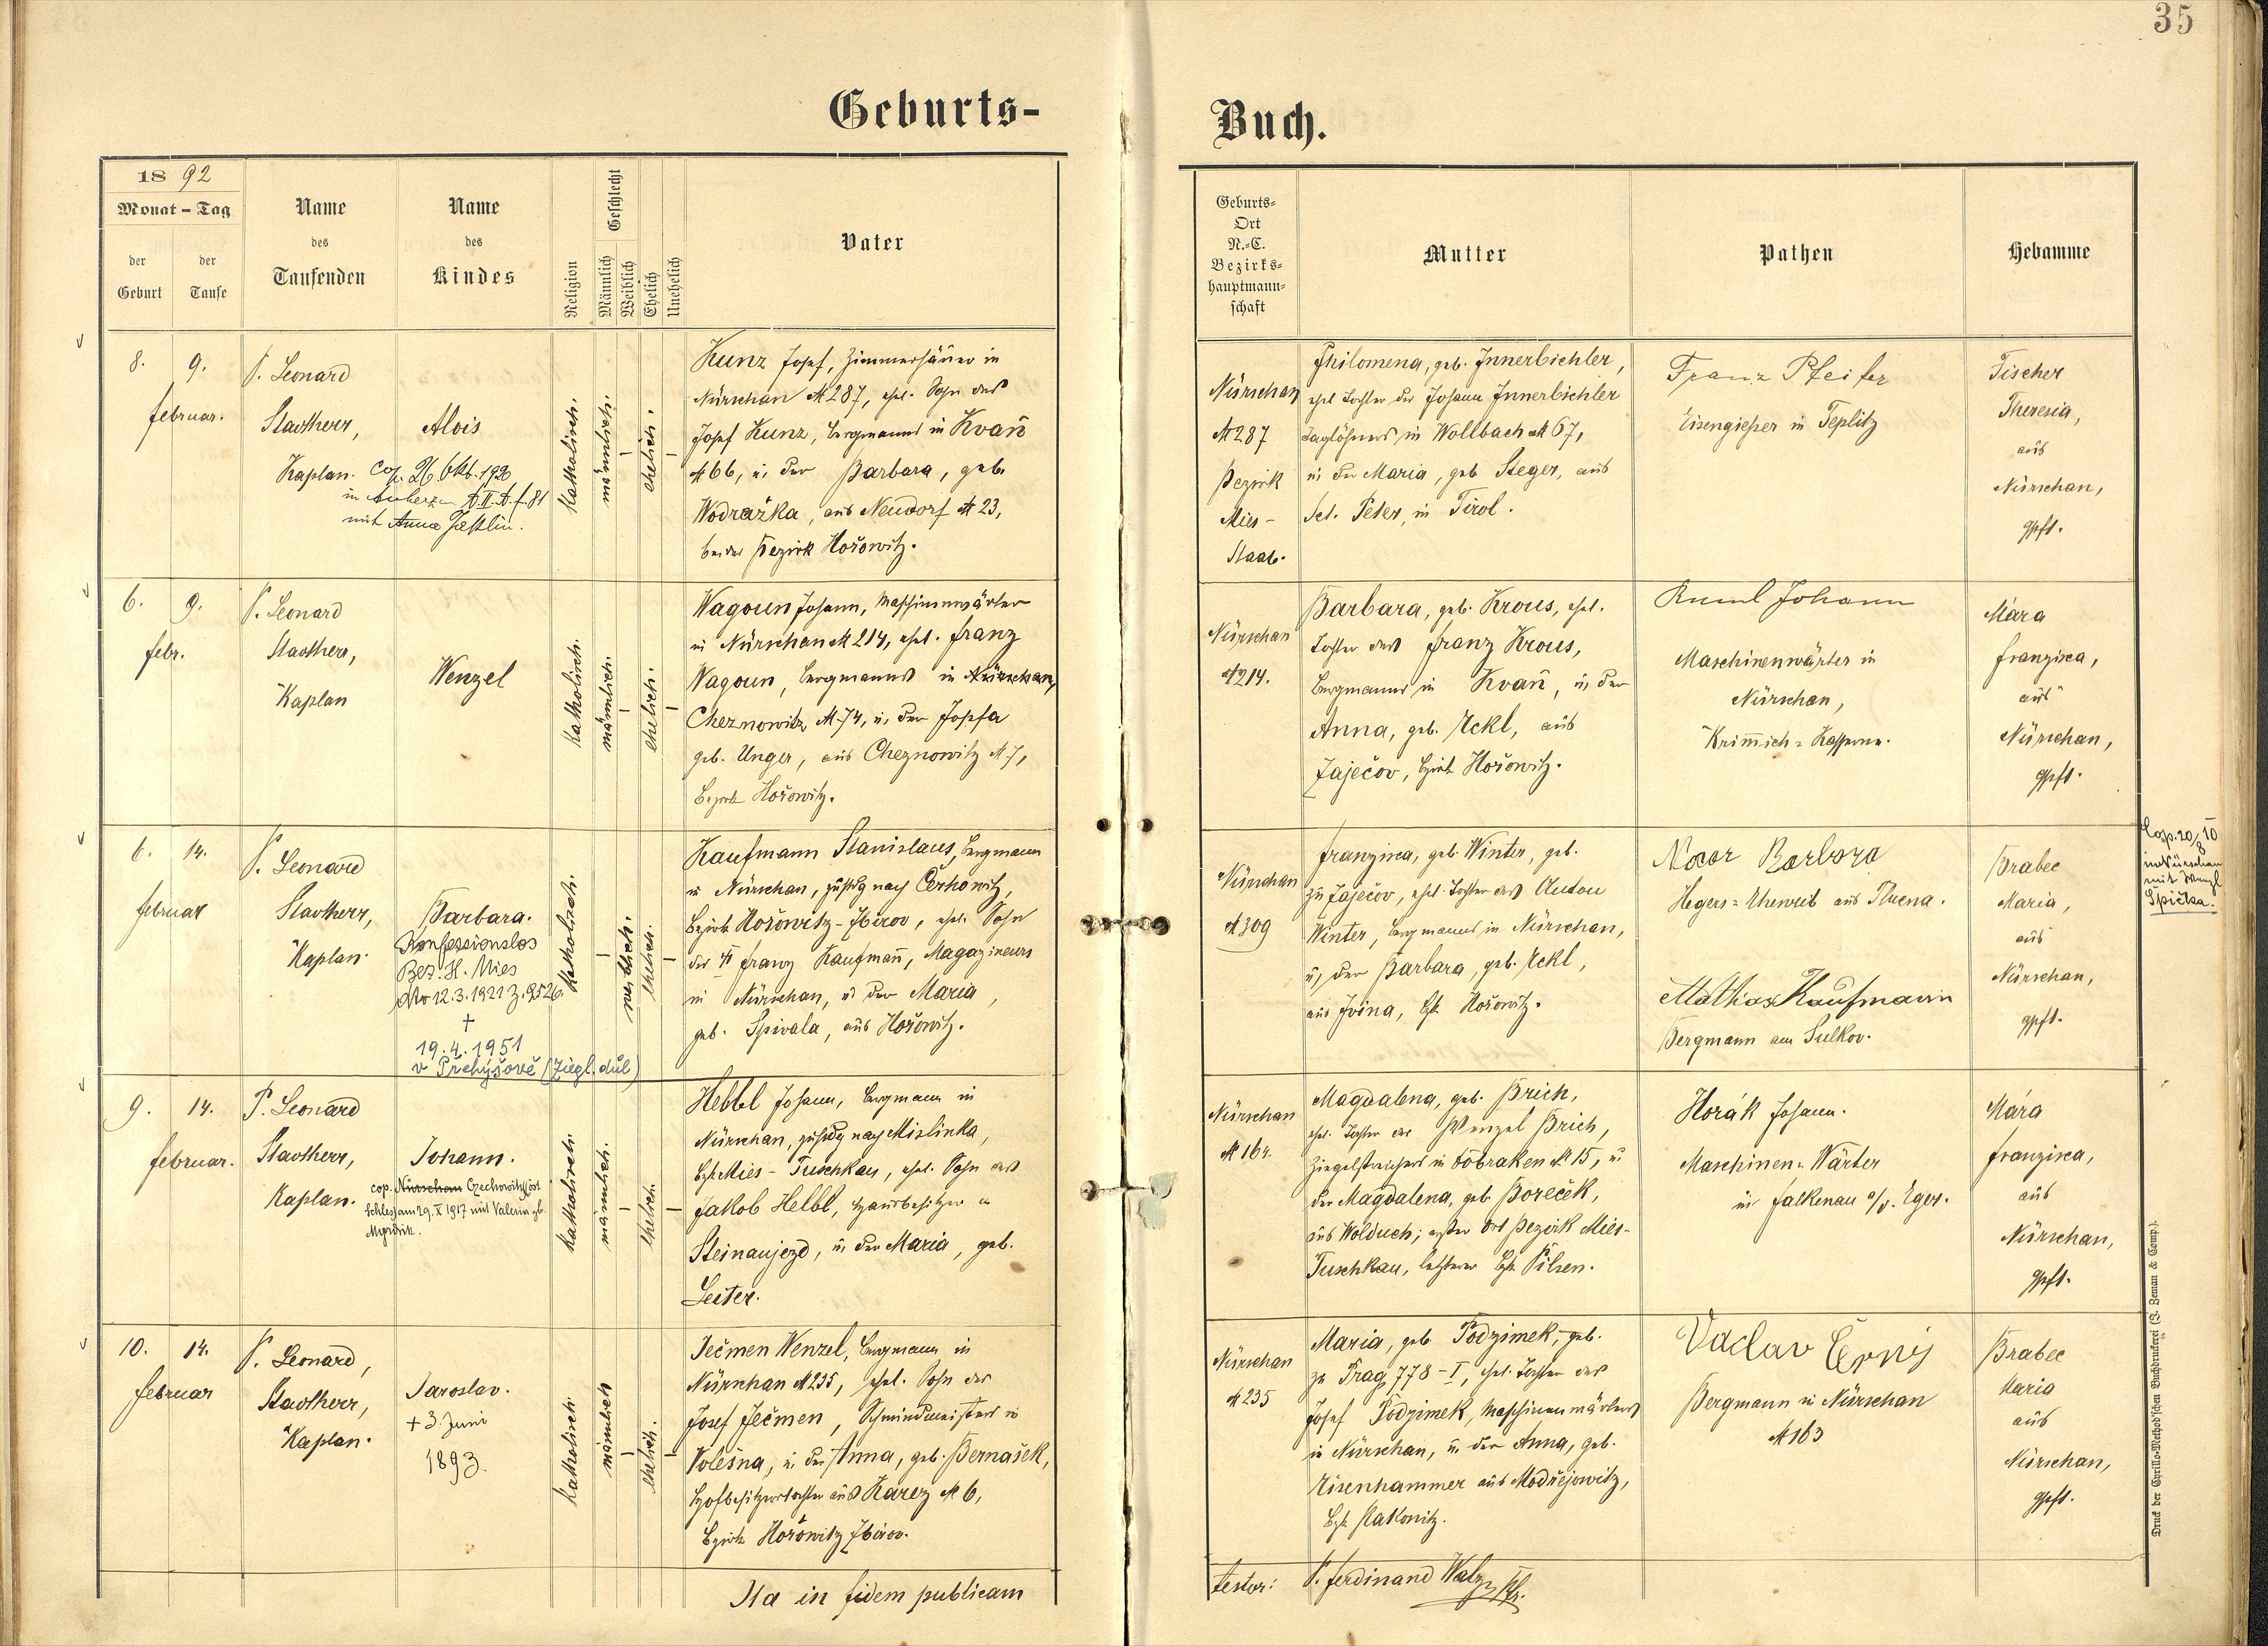 35
Geburts-
Buch.
18 92
Monat - Tag
der Geburt
der Taufe
Name des Taufenden
Name des Kindes
Religion
Geschlecht
Männlich
Weiblich
Ehelich
Unehelich
Vater
Geburts-
Ort
N.-C.
Bezirks-
hauptmann-
schaft
Mutter
Pathen
Hebamme
8. 9.
februar.
P. Leonard
Stavtherr,
Kaplan.
Alois
Cop. 26. Okt. 1920
mit Anna
katholisch.
männlich.
ehelich.
Kunz Josef, Zimmerhäuer in
Nürschan № 287, ehel. Sohn des
Josef Kunz, Bergmanns in Kvaň
№ 66, u. der Barbara, geb.
Wodražka, aus Neudorf № 23,
beides Bezirk Hořowitz.
Nürschan
№ 287
Bezirk
Mies-
Staab.
Philomena, geb. Innerbichler,
ehel. Tochter des Johann Innerbichler
Taglöhners in Wollbach № 67,
u. der Maria, geb. Steger, aus
Sct. Peter, in Tirol.
Franz Pfeifer
Eisengießer in Teplitz
Fischer
Theresia,
aus
Nürschan,
gpft.
6. 9.
febr.
P. Leonard
Stavtherr,
Kaplan
Wenzel
katholisch.
männlich.
ehelich.
Wagoun Johann, Maschinenwärter
in Nürschan № 214, ehel. franz
Wagoun, Bergmanns in Nürschan,
Cheznowitz № 74, u. der Josefa
geb. Unger, aus Cheznowitz № 7,
Bezirk Hořowitz.
Nürschan
№ 214.
Barbara, geb. Krous, ehel.
Tochter des franz Krous,
Bergmanns in Kvaň, u. der
Anna, geb. Eckl, aus
Zaječov, Bezirk Hořowitz.
Johann
Maschinenwärter in
Nürschan,
Krimich-Kaserne.
Mára
franzisca,
aus
Nürschan,
gpft.
6. 14.
februar
P. Leonard
Stavtherr,
Kaplan.
Barbara.
Konfessionslos
Bez. H. Mies
dto 12.3.1921 Z. 9526.
†
19.4.1951
v Přehýšově (Ziegl. důl)
katholisch.
weiblich.
ehelich.
Kaufmann Stanislaus, Bergmann
in Nürschan, zustdg nach Čerhowitz,
Bezirk Hořowitz-Zbirov, ehel. Sohn
des † franz Kaufmann, Magazineurs
in Nürschan, u. der Maria,
geb. Spivala, aus Hořowitz.
Nürschan
№ 309
franzisca, geb. Winter, geb.
zu Zaječov, ehel. Tochter des Anton
Winter, Bergmanns in Nürschan,
u. der Barbara, geb. Eckl,
aus Jvina, Bzk. Hořowitz.
Barbora
Hegers-Eheweib aus Tlucna.
Mathias Kaufmann
Bergmann am Sulkov.
Brabec
Maria,
aus
Nürschan,
gpft.
Cop. 20/8 10
in Nürschan
mit Wenzl
Špička.
9. 14.
februar.
P. Leonard
Stavtherr,
Kaplan.
Johann.
cop. Nürschan Czechowitz (öst.
Schles) am 29. X 1917 mit Valerin gb.
katholisch.
männlich.
ehelich.
Hebbl Johann, Bergmann in
Nürschan, zustdg nach Mislinka,
Bzk Mies-Tuschkau, ehel. Sohn des
Jakob Helbl, Hausbesitzer in
Steinaujezd, u. der Maria, geb.
Leiter.
Nürschan
№ 164.
Magdalena, geb. Brich,
ehel. Tochter des Wenzel Brich,
Ziegelstreichers in Dobraken № 15, u.
der Magdalena, geb. Boreček,
aus Wolduch; erster Ort Bezirk Mies-
Tuschkau, letzterer Bzk Pilsen.
Horák Johann.
Maschinen-Wärter
in Falkenau a/d. Eger.
Mára
franzisca,
aus
Nürschan,
gpft.
10. 14.
februar
P. Leonard,
Stavtherr,
Kaplan.
Jaroslav.
† 3. Juni
1893.
katholisch.
männlich
ehelich.
Ječmen Wenzel, Bergmann in
Nürschan № 235, ehel. Sohn des
Josef Ječmen, Schmiedmeisters in
Volešna, u. der Anna, geb. Bernašek,
Hofbesitzerstochter aus Karez № 6,
Bezirk Hořowitz Zbirov.
Nürschan
№ 235
Maria, geb. Podzimek, geb.
zu Prag 778-I, ehel. Tochter des
Josef Podzimek, Maschinenwärters
in Nürschan, u. der Anna, geb.
Eisenhammer aus Modřejowitz,
Bzk. Rakonitz.
Vaclav Černý
Bergmann in Nürschan
№ 163
Brabec
Maria
aus
Nürschan,
gpft.
Ita in fidem publicam
testor: P. Ferdinand Walz, Pfr.
Druck der Cyrillo-Method'schen Buchdruckerei (J. Zeman & Comp.).